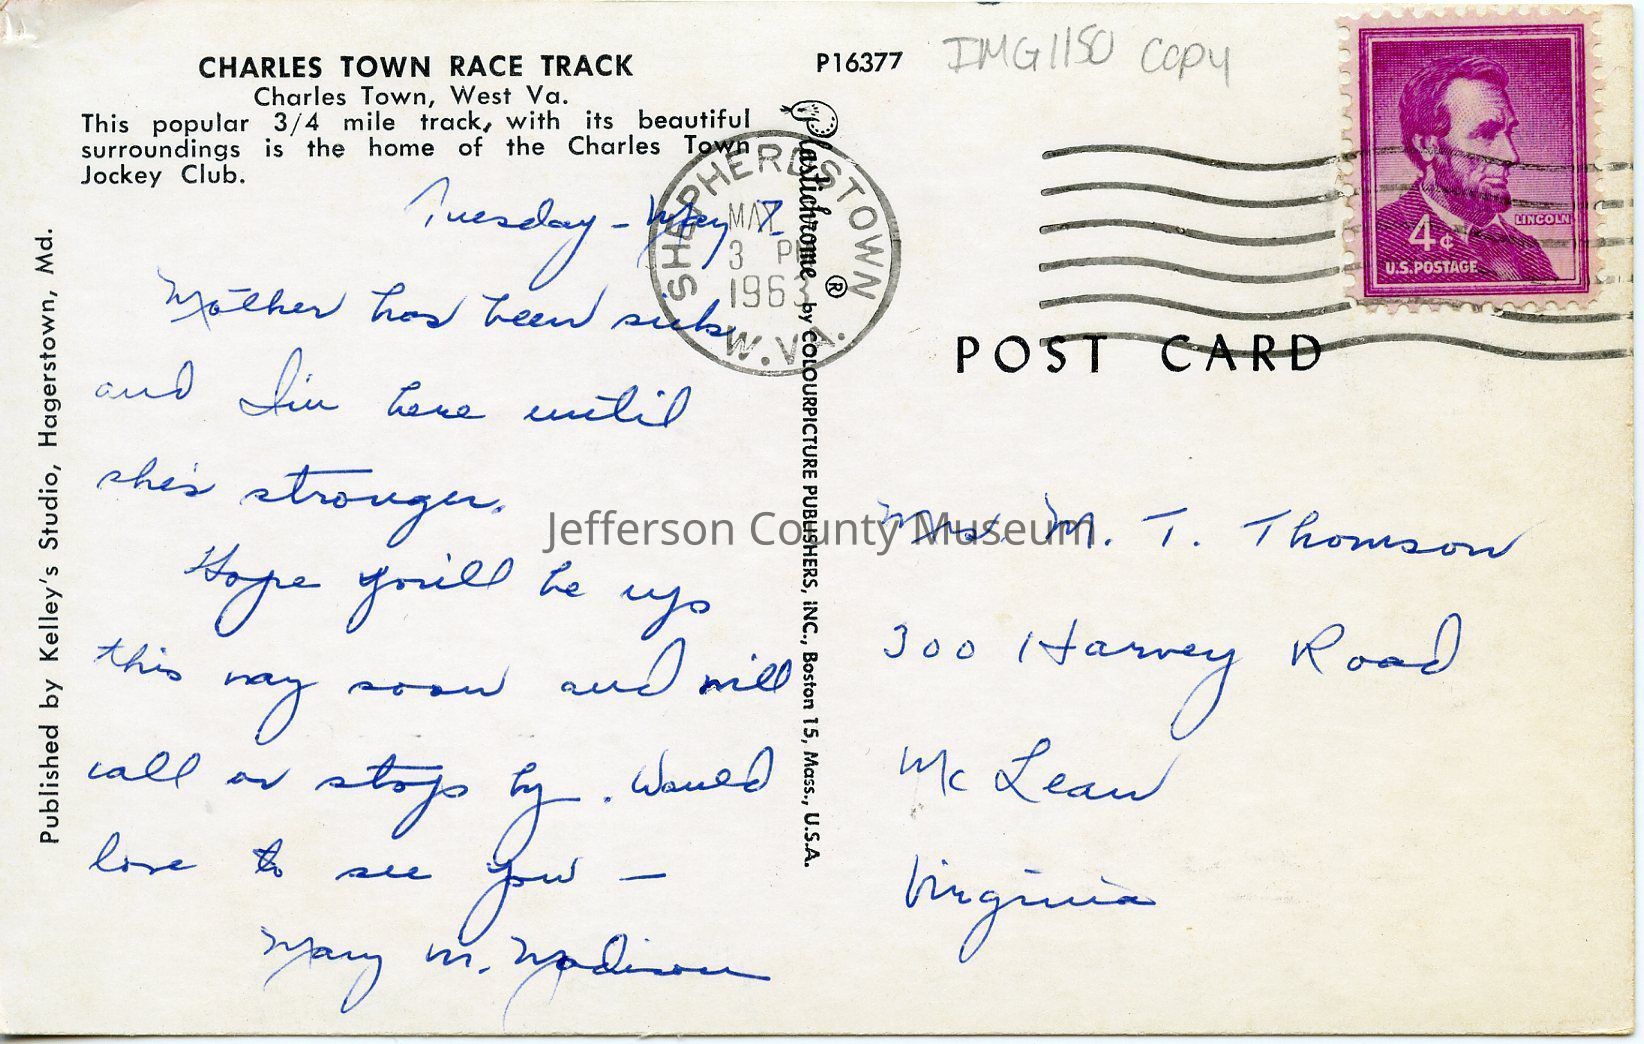 CHARLES TOWN RACE TRACK
Charles Town, West Va.
This popular 3/4 mile track, with its beautiful
surroundings is the home of the Charles Town
Jockey Club.
P16377
IMG1150 copy
Published by Kelley's Studio, Hagerstown, Md.
Plastichrome ® by COLOURPICTURE PUBLISHERS, INC., Boston 15, Mass., U.S.A.
SHEPHERDSTOWN
MAY 7
3 PM
1963
W. VA.
LINCOLN
4¢
U.S. POSTAGE
POST CARD
Tuesday - May 7.
Mother has been sick
and I'm here until
she's stronger.
Hope you'll be up
this way soon and will
call or stop by. Would
love to see you —
Mary M. Madison
Mrs. M. T. Thomson
300 Harvey Road
Mc Lean
Virginia
Jefferson County Museum